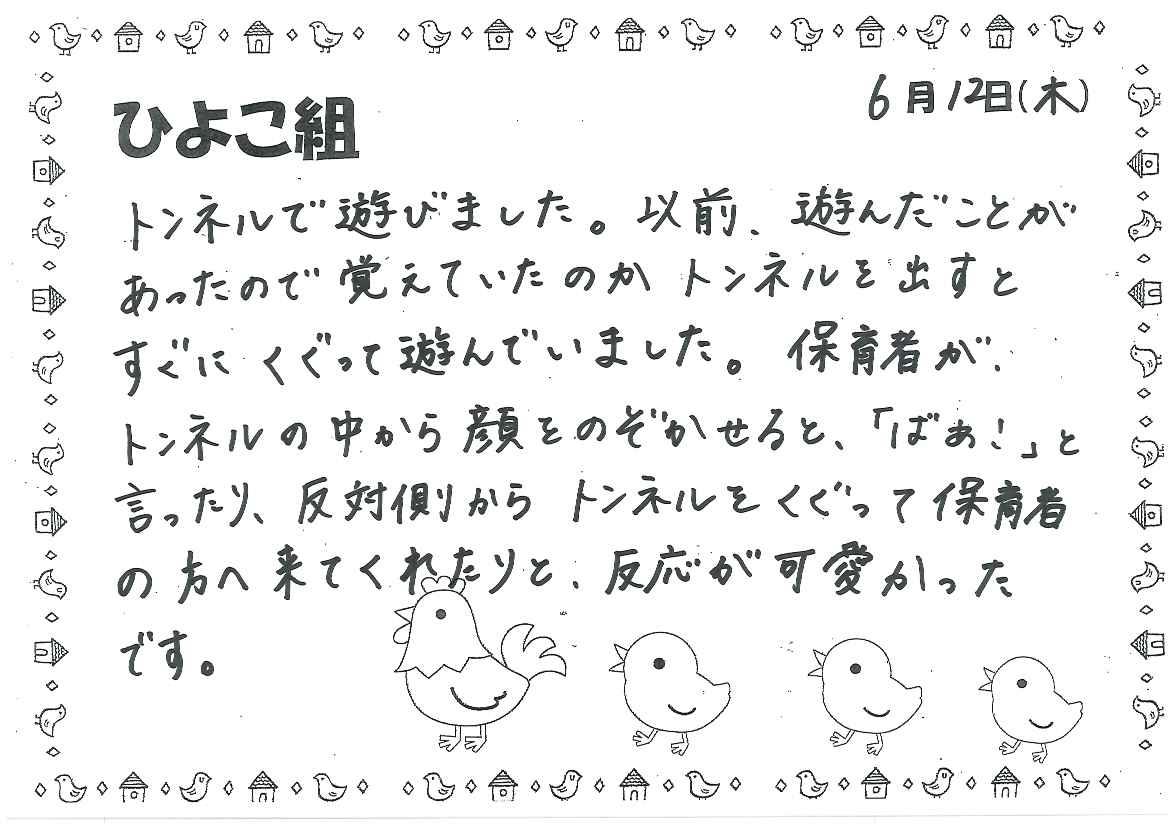 6月12日(木)
ひよこ組
トンネルで遊びました。以前、遊んだことが
あったので覚えていたのかトンネルを出すと
すぐにくぐって遊んでいました。保育者が、
トンネルの中から顔をのぞかせると、「ばぁ!」と
言ったり、反対側からトンネルをくぐって保育者
の方へ来てくれたりと、反応が可愛かった
です。